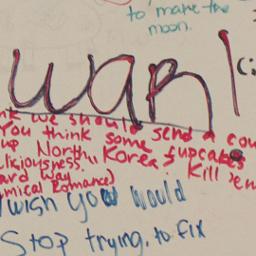 to make the
moon.
war
(i
nk we should send a cou
You think some cupcakes
up North Korea & Kill 'em
ligiousness.
ard Way
mical Romance)
I wish you would
Stop trying. to fix